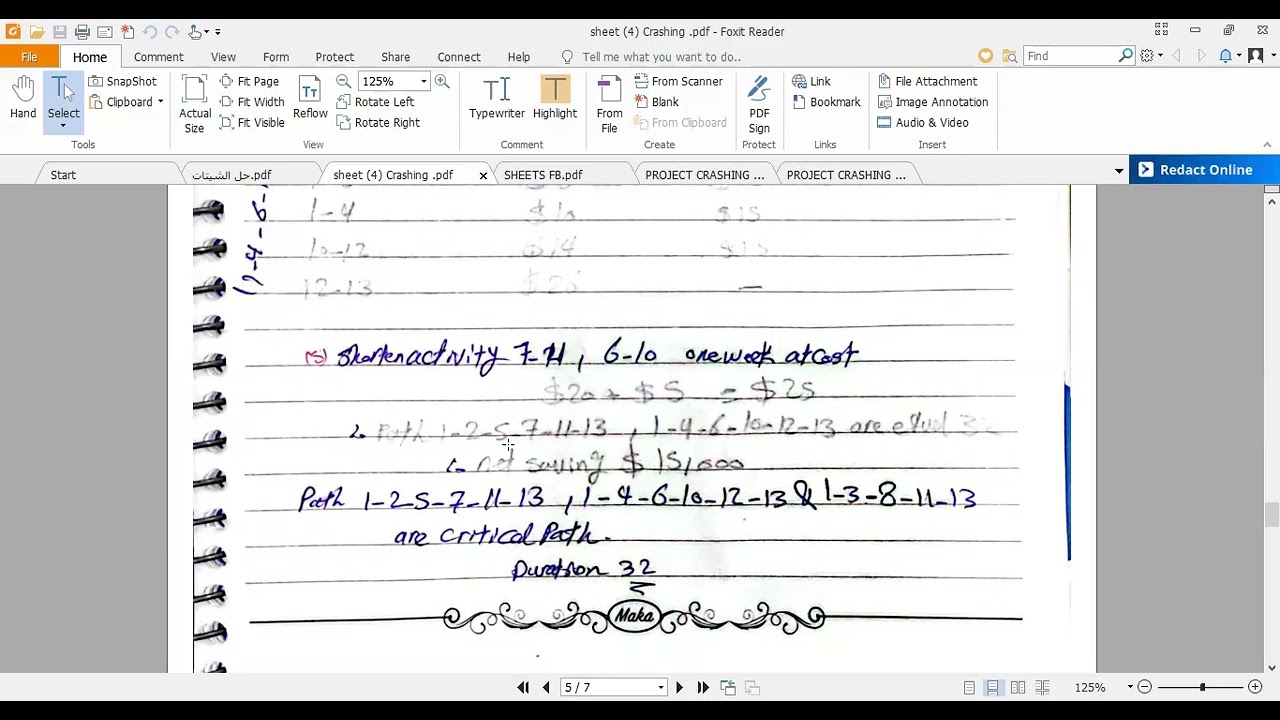 sheet (4) Crashing .pdf - Foxit Reader
File Home Comment View Form Protect Share Connect Help Tell me what you want to do.. Find
Hand Select SnapShot Clipboard Actual Size Fit Page Fit Width Fit Visible Reflow 125% Rotate Left Rotate Right Typewriter Highlight From File From Scanner Blank From Clipboard PDF Sign Link Bookmark File Attachment Image Annotation Audio & Video
Tools View Comment Create Protect Links Insert
Start حل الشيتات.pdf sheet (4) Crashing .pdf SHEETS FB.pdf PROJECT CRASHING ... PROJECT CRASHING ... Redact Online
1-4 $10 $15
10-12 $14
12-13 —
(5) Shorten activity 7-11, 6-10 one week at cost
$20 + $5 = $25
Path 1-2-5-7-11-13, 1-4-6-10-12-13 are equal
net saving $15,000
Path 1-2-5-7-11-13, 1-4-6-10-12-13 & 1-3-8-11-13
are critical Path.
Duration 32
Maka
5 / 7 125%